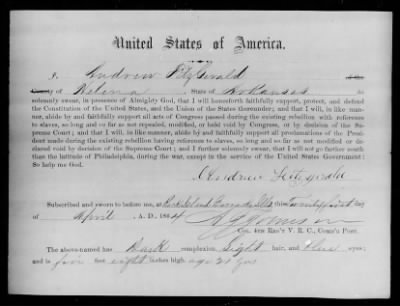 United States of America.
I, Andrew Fitzgerald of the
County of Helena, State of Arkansas do
solemnly swear, in presence of Almighty God, that I will henceforth faithfully support, protect, and defend
the Constitution of the United States, and the Union of the States thereunder; and that I will, in like man-
ner, abide by and faithfully support all acts of Congress passed during the existing rebellion with reference
to slaves, so long and so far as not repealed, modified, or held void by Congress, or by decision of the Su-
preme Court; and that I will, in like manner, abide by and faithfully support all proclamations of the Presi-
dent made during the existing rebellion having reference to slaves, so long and so far as not modified or de-
clared void by decision of the Supreme Court; and I further solemnly swear, that I will not go farther south
than the latitude of Philadelphia, during the war, except in the service of the United States Government:
So help me God.
Andrew Fitzgerald
Subscribed and sworn to before me, at Rock Island Barracks, Ills this Twenty first day
of April A. D., 1864
Col. 4th Reg't V. R. C., Comd'g Post.
The above-named has Dark complexion, Light hair, and Blue eyes;
and is five feet eight inches high, age 21 yrs